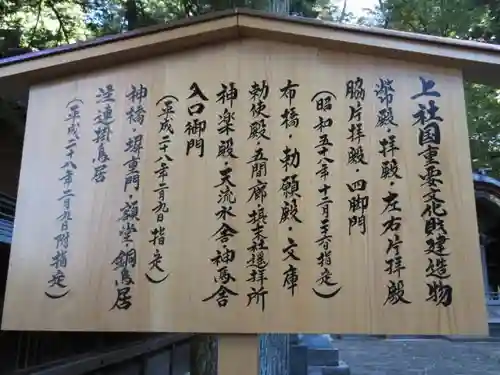 上社国重要文化財建造物
幣殿・拝殿・左右片拝殿
脇片拝殿・四脚門
（昭和五八年十二月二六日指定）
布橋・勅願殿・文庫
勅使殿・五間廊・摂末社遥拝所
神楽殿・天流水舎・神馬舎
入口御門
（平成二八年二月九日指定）
神橋・塀重門・額堂・銅鳥居
逗連掛鳥居
（平成二十八年二月九日附指定）